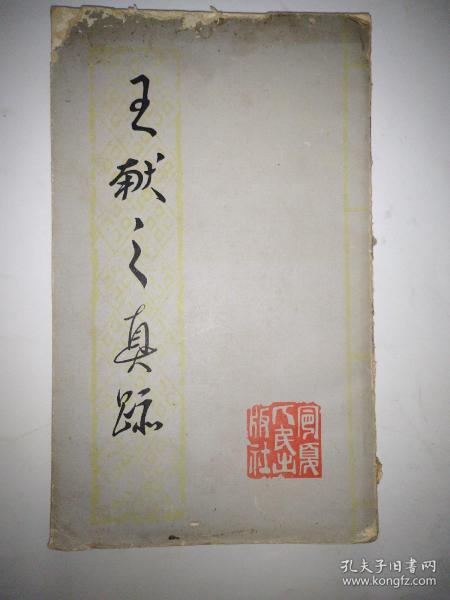 王献之真跡
宁夏
人民出
版社
孔夫子旧书网
www.kongfz.com